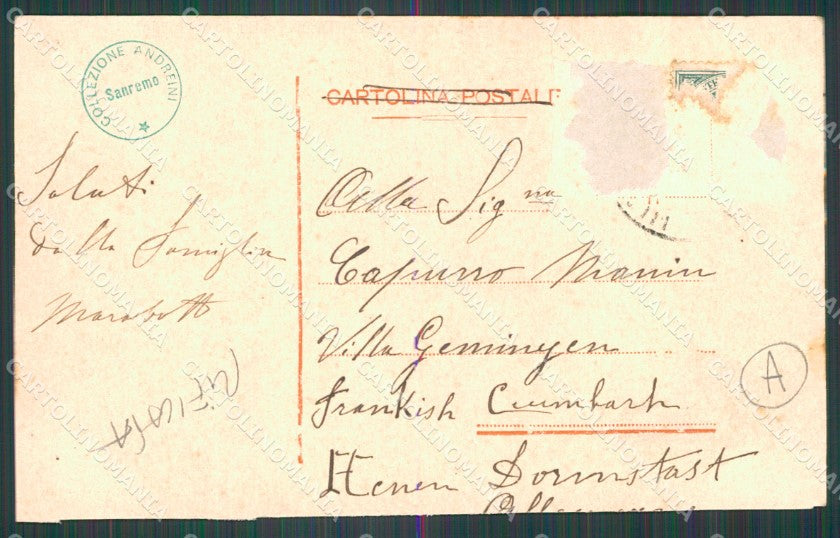 COLLEZIONE ANDREINI
Sanremo
CARTOLINA POSTALE
Saluti
dalla Famiglia
Marabotti
Alla Sig na
Capurro Manin
Villa Gemingen
Frankish Crumbach
Henen Dormstast
A
CARTOLINOMANIA